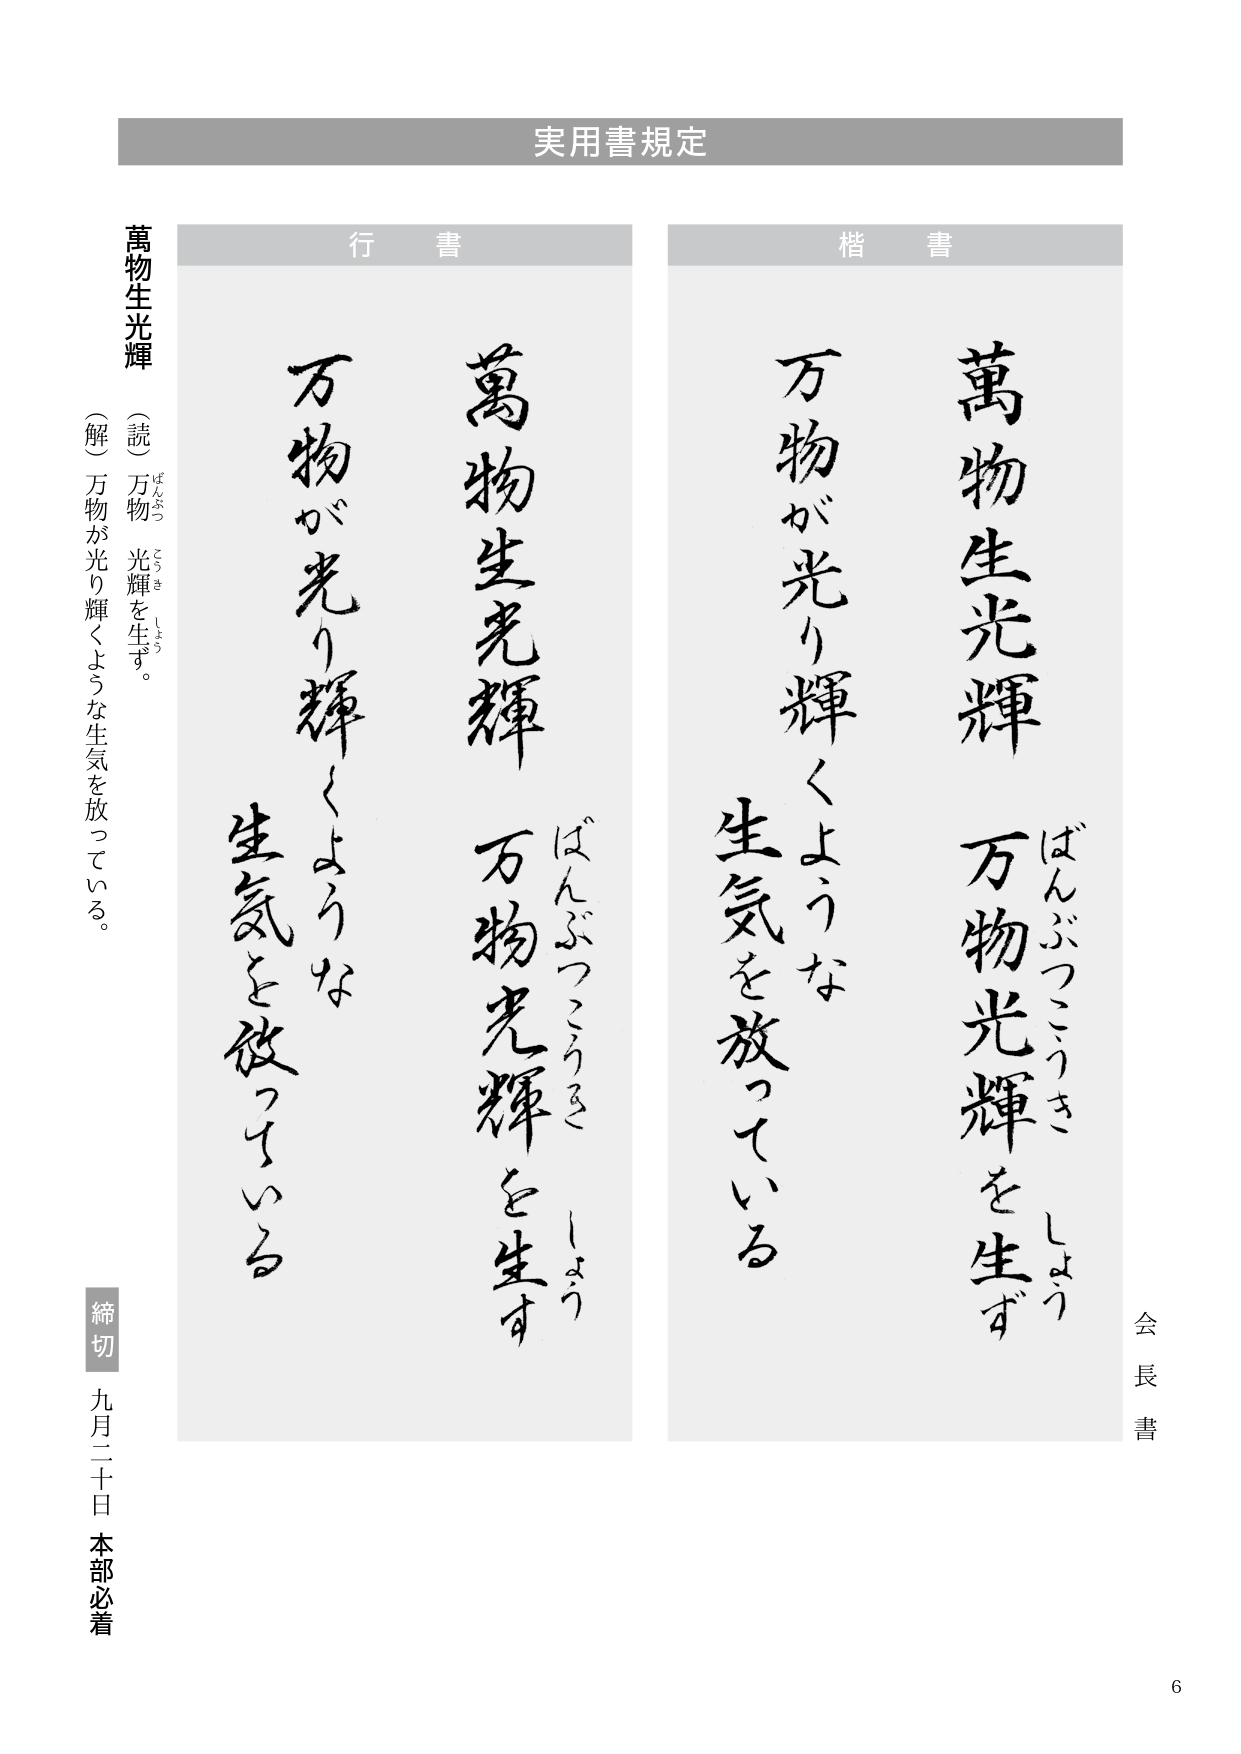 実用書規定
会長書
楷書
ばんぶつこうき しょう
萬物生光輝 万物光輝を生ず
万物が光り輝くような
生気を放っている
行書
ばんぶつこうき しょう
萬物生光輝 万物光輝を生す
万物が光り輝くような
生気を放っている
ばんぶつ こうき しょう
萬物生光輝 (読) 万物 光輝を生ず。
(解) 万物が光り輝くような生気を放っている。
締切 九月二十日 本部必着
6